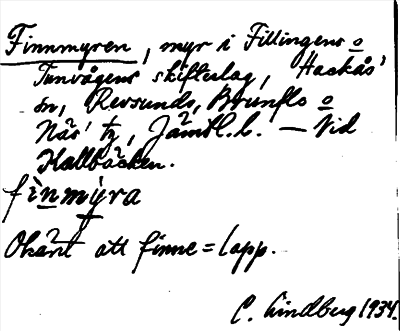 Finnmyren, myr i Fillingens o
Tunvågens skifteslag, Hackås'
sn, Revsunds, Brunflo o
Näs' tg, Jämtl. l. — Vid
Kallbäcken.
finmyra
Okänt att finne = lapp.
C. Lindberg 1934.